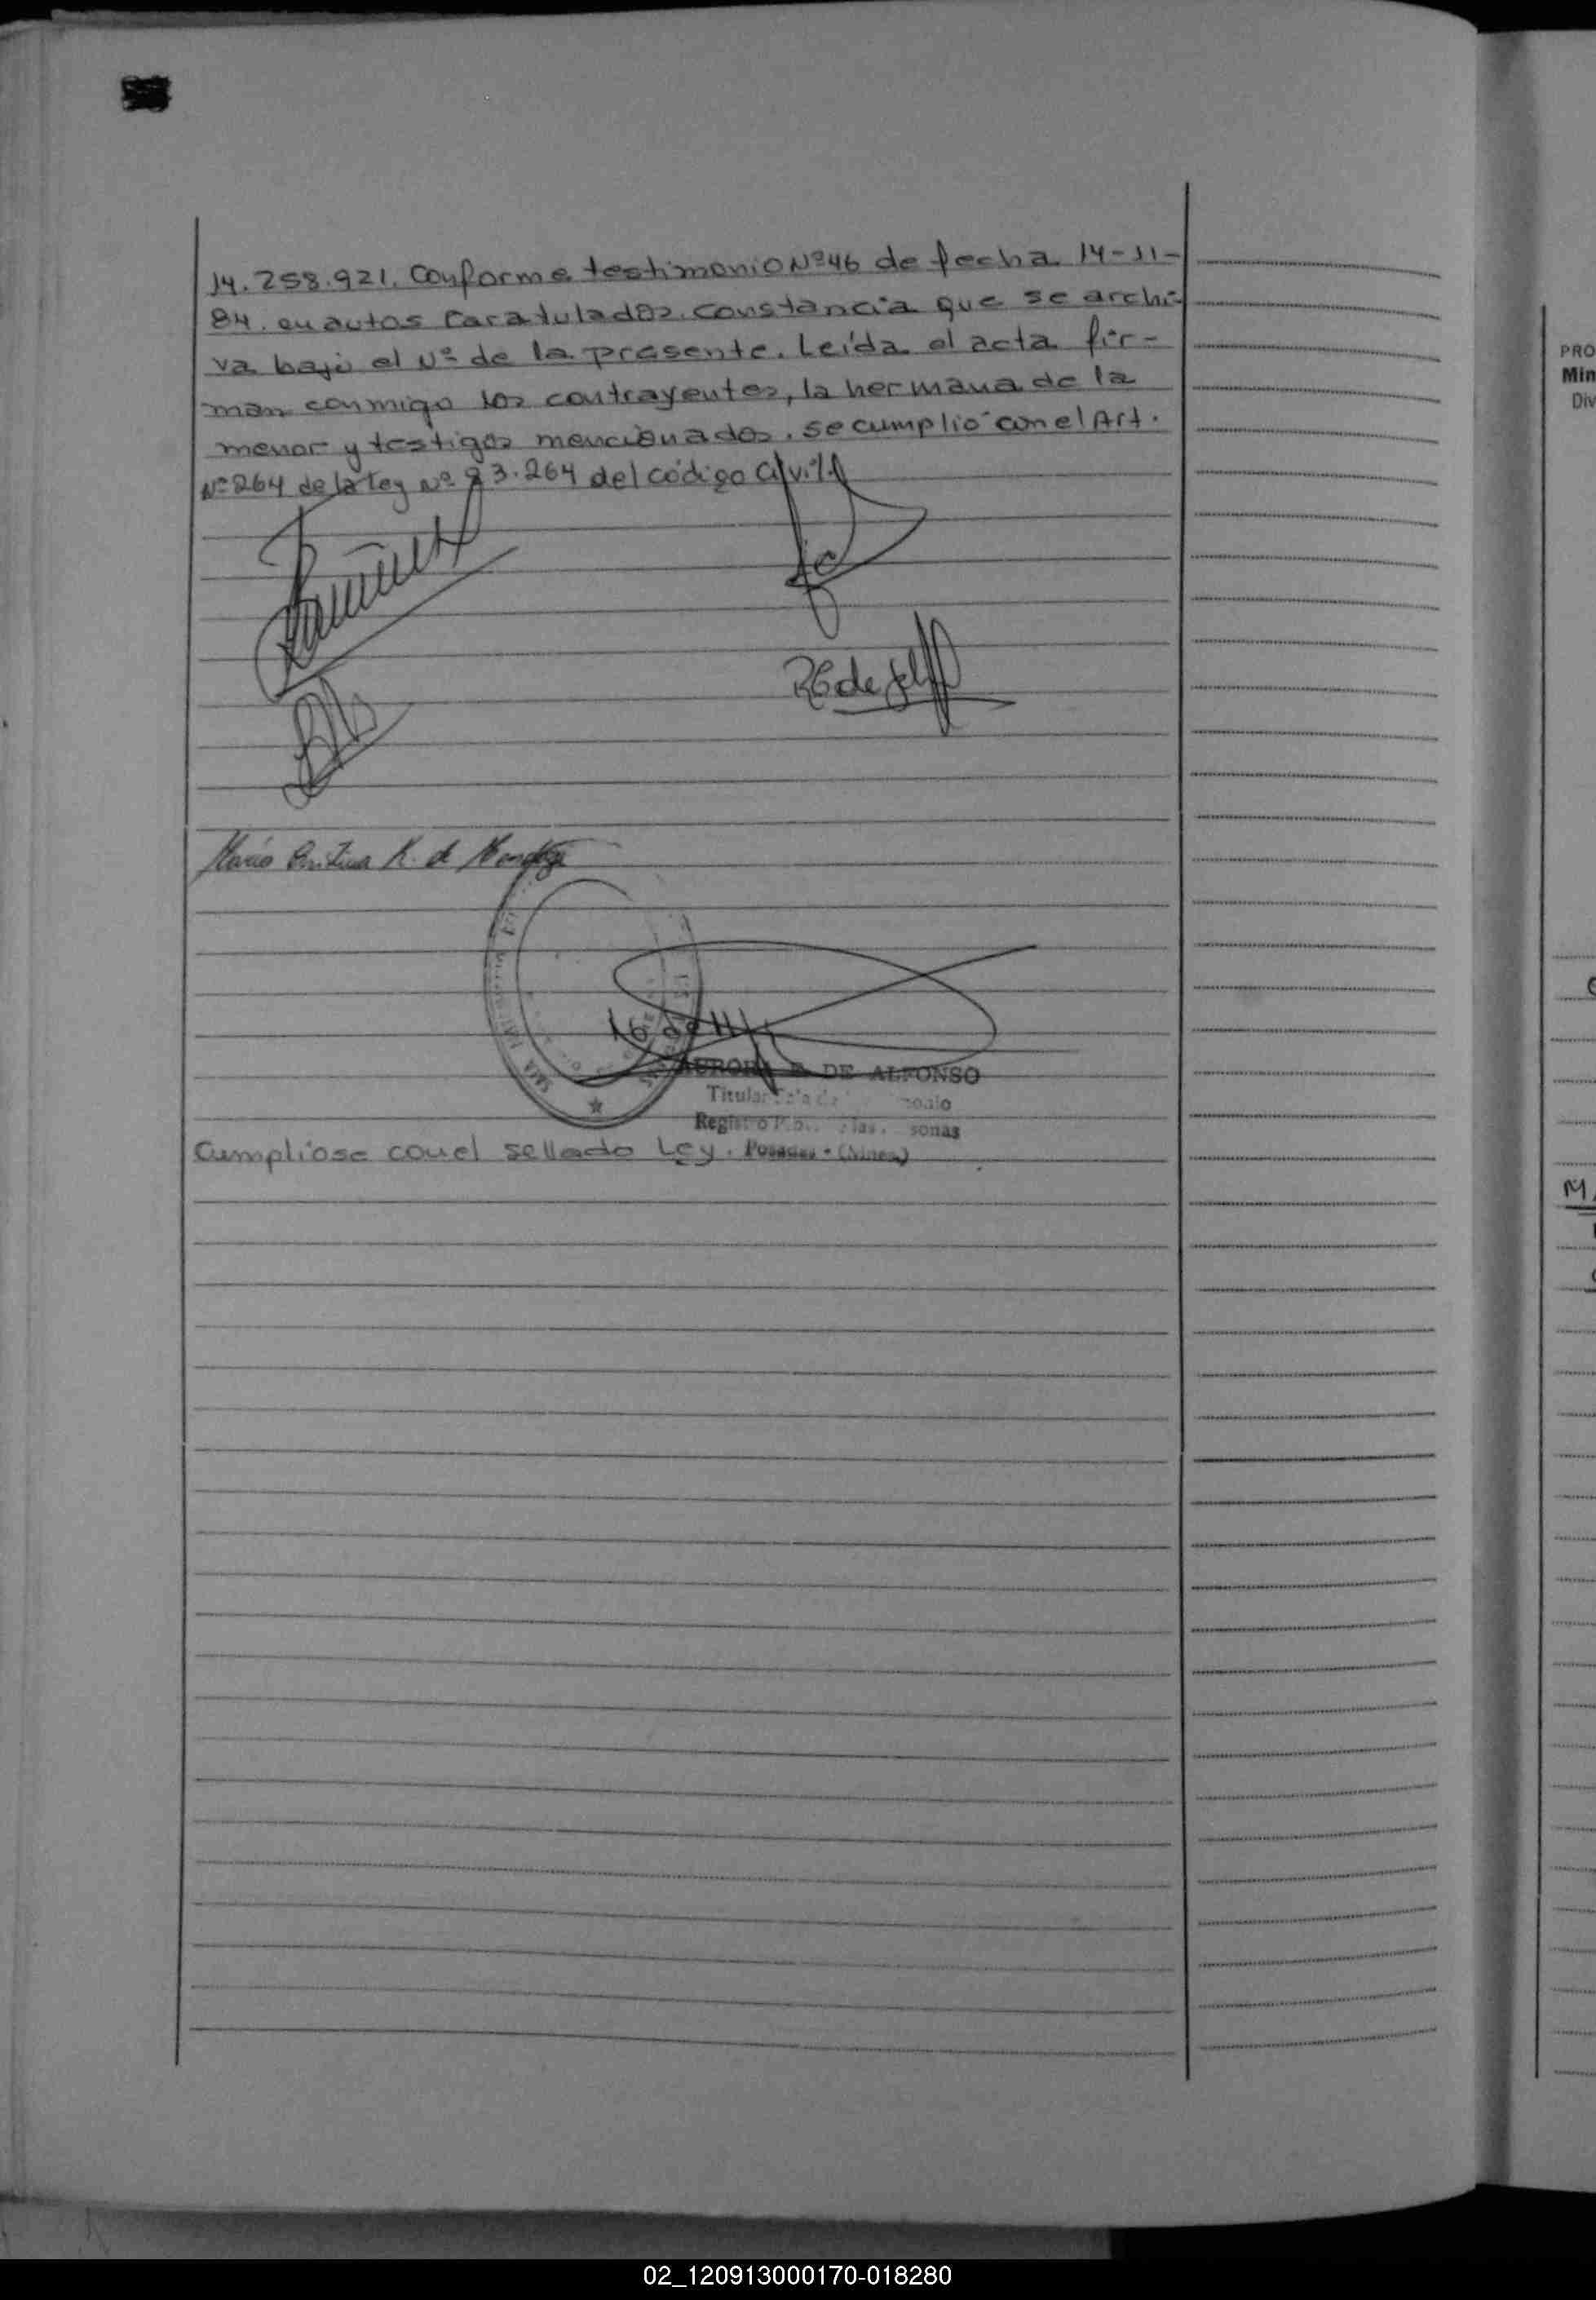 14.258.921. Conforme testimonio Nº46 de fecha 14-11-
84. en autos caratulados. Constancia que se archi-
va bajo el Nº de la presente. Leída el acta fir-
man conmigo los contrayentes, la hermana de la
menor y testigos mencionados. Se cumplió con el Art.
Nº 264 de la Ley Nº 23.264 del código Civil
Ramirez
María Cristina R. de
AURORA E. DE ALFONSO
Titular
Registro sonas
Cumpliose con el sellado Ley. Posadas - (Mnes)
PRO
Min
Div
02_120913000170-018280